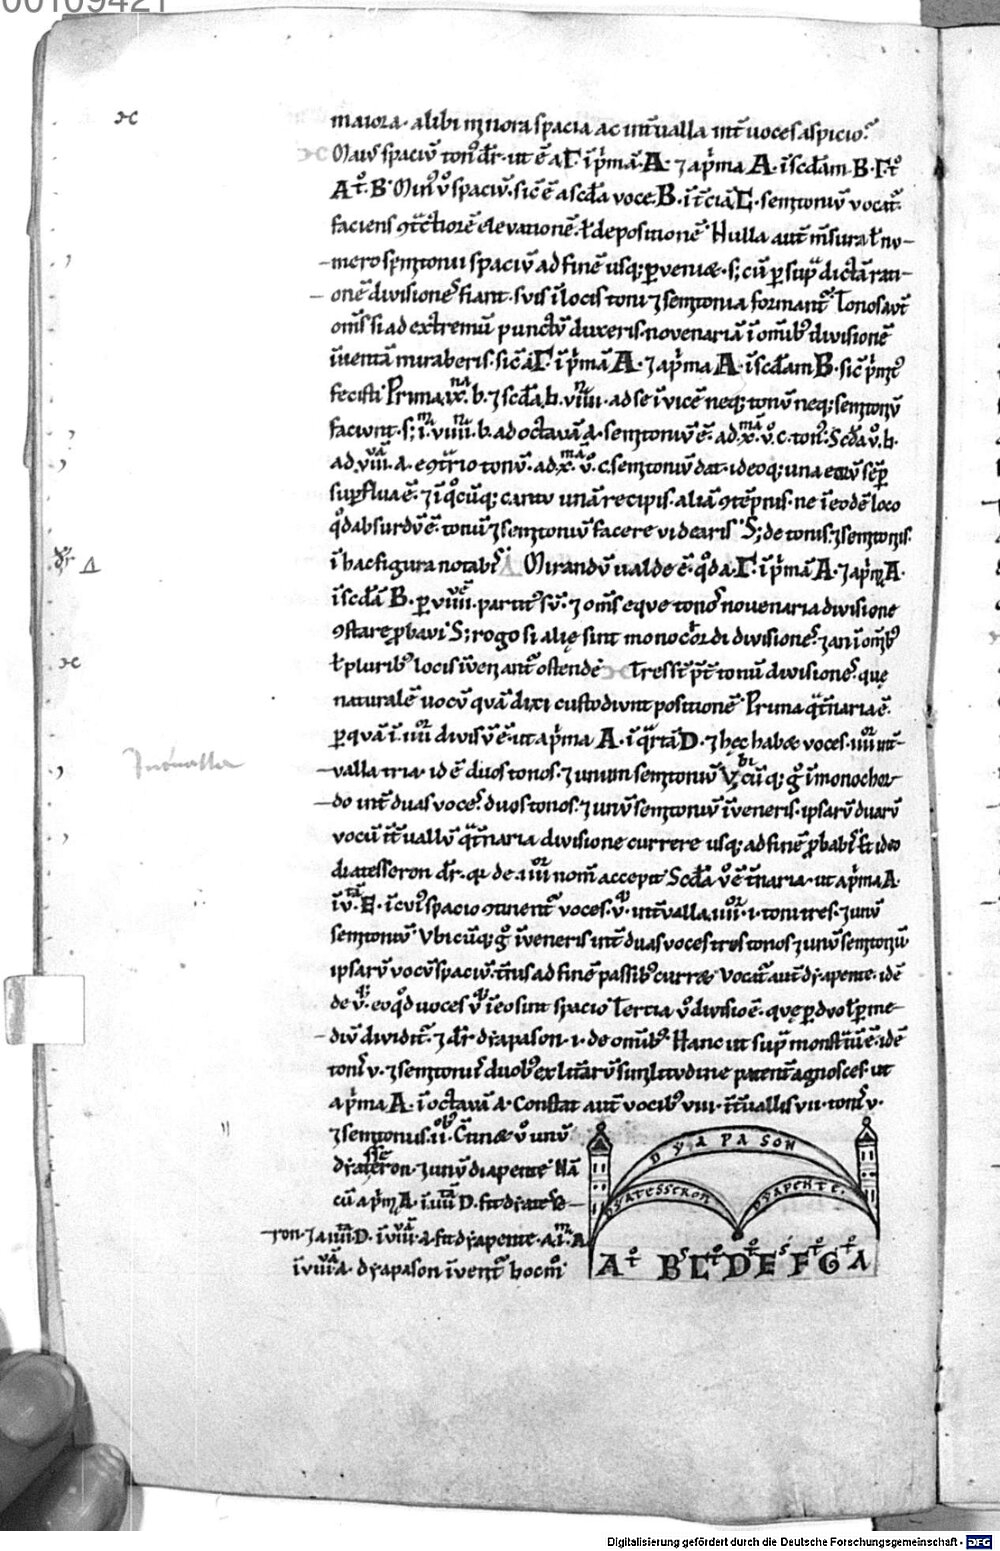 00109421
maiora· alibi minora spacia ac int̄ualla int̄ uoces aspicio.
Maiꝰ spaciū tonꝰ dr̄· ut ē a Γ· ī pͥmā A· ⁊ a pͥma A· ī scdam· B· Γ· t̊
A t̊· B· Minꝰ v̊ spaciū· sic̄ ē a scda uoce· B· ī t̄ciā C· semitoniū uocat̄
faciens ꝯt̄ctiorē eleuationē· ł depositionē· Nulla aut̄ m̄sura ł nu-
mero semitonii spaciū ad finē usq; pueniǣ· s; cū p supͣ dictā rati-
onē diuisiones fiant· suis ī locis toni ⁊ semitonia formant̄· Tonos aut̄
om̄s si ad extremū punctū duxeris· nouenariā ī omībꝰ diuisionē
īuentā miraberis· sic̄ a Γ· ī pͥmā A· ⁊ a pͥma A· ī scdam B· sic pͥmit̊
fecisti· Prima· ix.ͫᵃ b· ⁊ scda· b· viiii· ad se īuicē neq; tonū neq; semitoniū
faciunt· s; i· viiii· b· ad octauā a· semitoniū ē· ad· x.ͫᵃ v̊· c· tonꝰ· Scda v̊· b·
ad· viii· a· e ꝯt̄rio tonū· ad· x.ͫᵃ v̊· c semitoniū dat· ideoq; una eaꝝ sēp
supflua ē· ⁊ ī q̊cūq; cantu unā recipis· aliā ꝯtēpnis· ne ī eodē loco
qd absurdū ē· tonū ⁊ semitoniū facere uidearis· S; de tonis ⁊ semitoniis·
ī hac figura notabis· Mirandū ualde ē· qd a Γ· ī pͥmā A· ⁊ a pͥma A·
ī scdā B· p viiii· partit̊ sū· ⁊ om̄s eque tonos nouenaria diuisione
ꝯstare pbaui· S; rogo si alię sint monocordi diuisiones· ⁊ an ī omībꝰ
ł pluribꝰ locis īueniant̄ ostende· Tres st̄ pt̄ tonū diuisiones· quę
naturalē uocū quā dixi custodiunt positionē· Prima q̄t̄naria ē·
p quā ī· iiiior diuisū ē· ut a pͥma A· ī qͣrtā D· ⁊ hęc habǣ uoces· iiiior int̄-
ualla tria· id ē duos tonos· ⁊ unum semitoniū· Vbicūq; g̊ ī monochor-
do int̄ duas uoces· duos tonos· ⁊ unū semitoniū īueneris· ipsarū duarū
uocū īt̄uallū q̄t̄naria diuisione currere usq; ad finē pbabis· Et ideo
diatesseron dr̄· qa de· iiiior nomen accepit· Scda v̊ ē t̄naria· ut a pͥma A·
ī v.ͭᵃ E· ī cuiꝰ spacio ꝯtinent̄ uoces· v· int̄ualla· iiiior· i· toni tres· ⁊ unū
semitoniū· Vbicūq; g̊ īueneris int̄ duas uoces tres tonos ⁊ unū semitoniū
ipsarū uocū spaciū· t̄nis ad finē passibꝰ currǣ· Vocat̄ aut̄ dyapente· idē
de· v· eo qd uoces v· ī eo sint spacio· Tertia v̊ diuisio ē· quę p duo ł p me-
diū diuidit̄· ⁊ dr̄ dyapason· i· de omībꝰ· Hanc ut supͣ monstͣuī· ē· idē
toni v· ⁊ semitonii duobꝰ ex litt̄arū similitudine patent̄ agnosces· ut
a pͥma A· ī octauā a· Constat aut̄ uocibꝰ viii· īt̄uallis vii· tonis v·
⁊ semitoniis· ii· Cͣtinǣ v̊ unū
dyateron· ⁊ unū diapente· Nā
cū a pͥma A· ī iiiitā D· fit dyatesse-
ron· ⁊ a iiiita D· ī viiiā· a· fit dyapente· a· i.ͫᵃ A·
ī viiiā a· dyapason īuenit̄ hoc m̊
DYAPASON
DYATESSERON
DYAPENTE·
A t̊ B s C t̊ D t̊ E s F t̊ G t̊ A
Digitalisierung gefördert durch die Deutsche Forschungsgemeinschaft - DFG